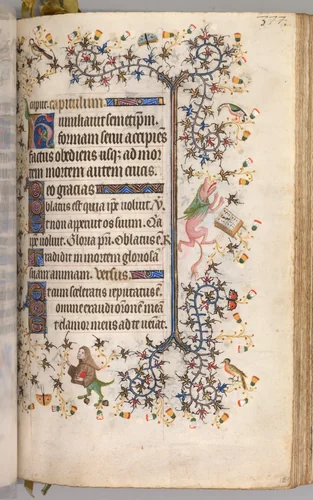 377.
cipue. capitulum
Humiliauit semetipm.
formam serui accipiēs
factus obediens usqz ad mor
tem mortem autem crucis.
Deo gracias
Oblatus est quia ipē uoluit. ℣.
Et non apperuit os suum. Q̄a
ipē uoluit. Gloria pr̄i. Oblatus ē. ℟
Tradidit in mortem gloriosā
suam animam. versus.
Et cum sceleratis reputatus ē
Domine exaudi or̄onē meā
Et clamor meus ad te ueniat.